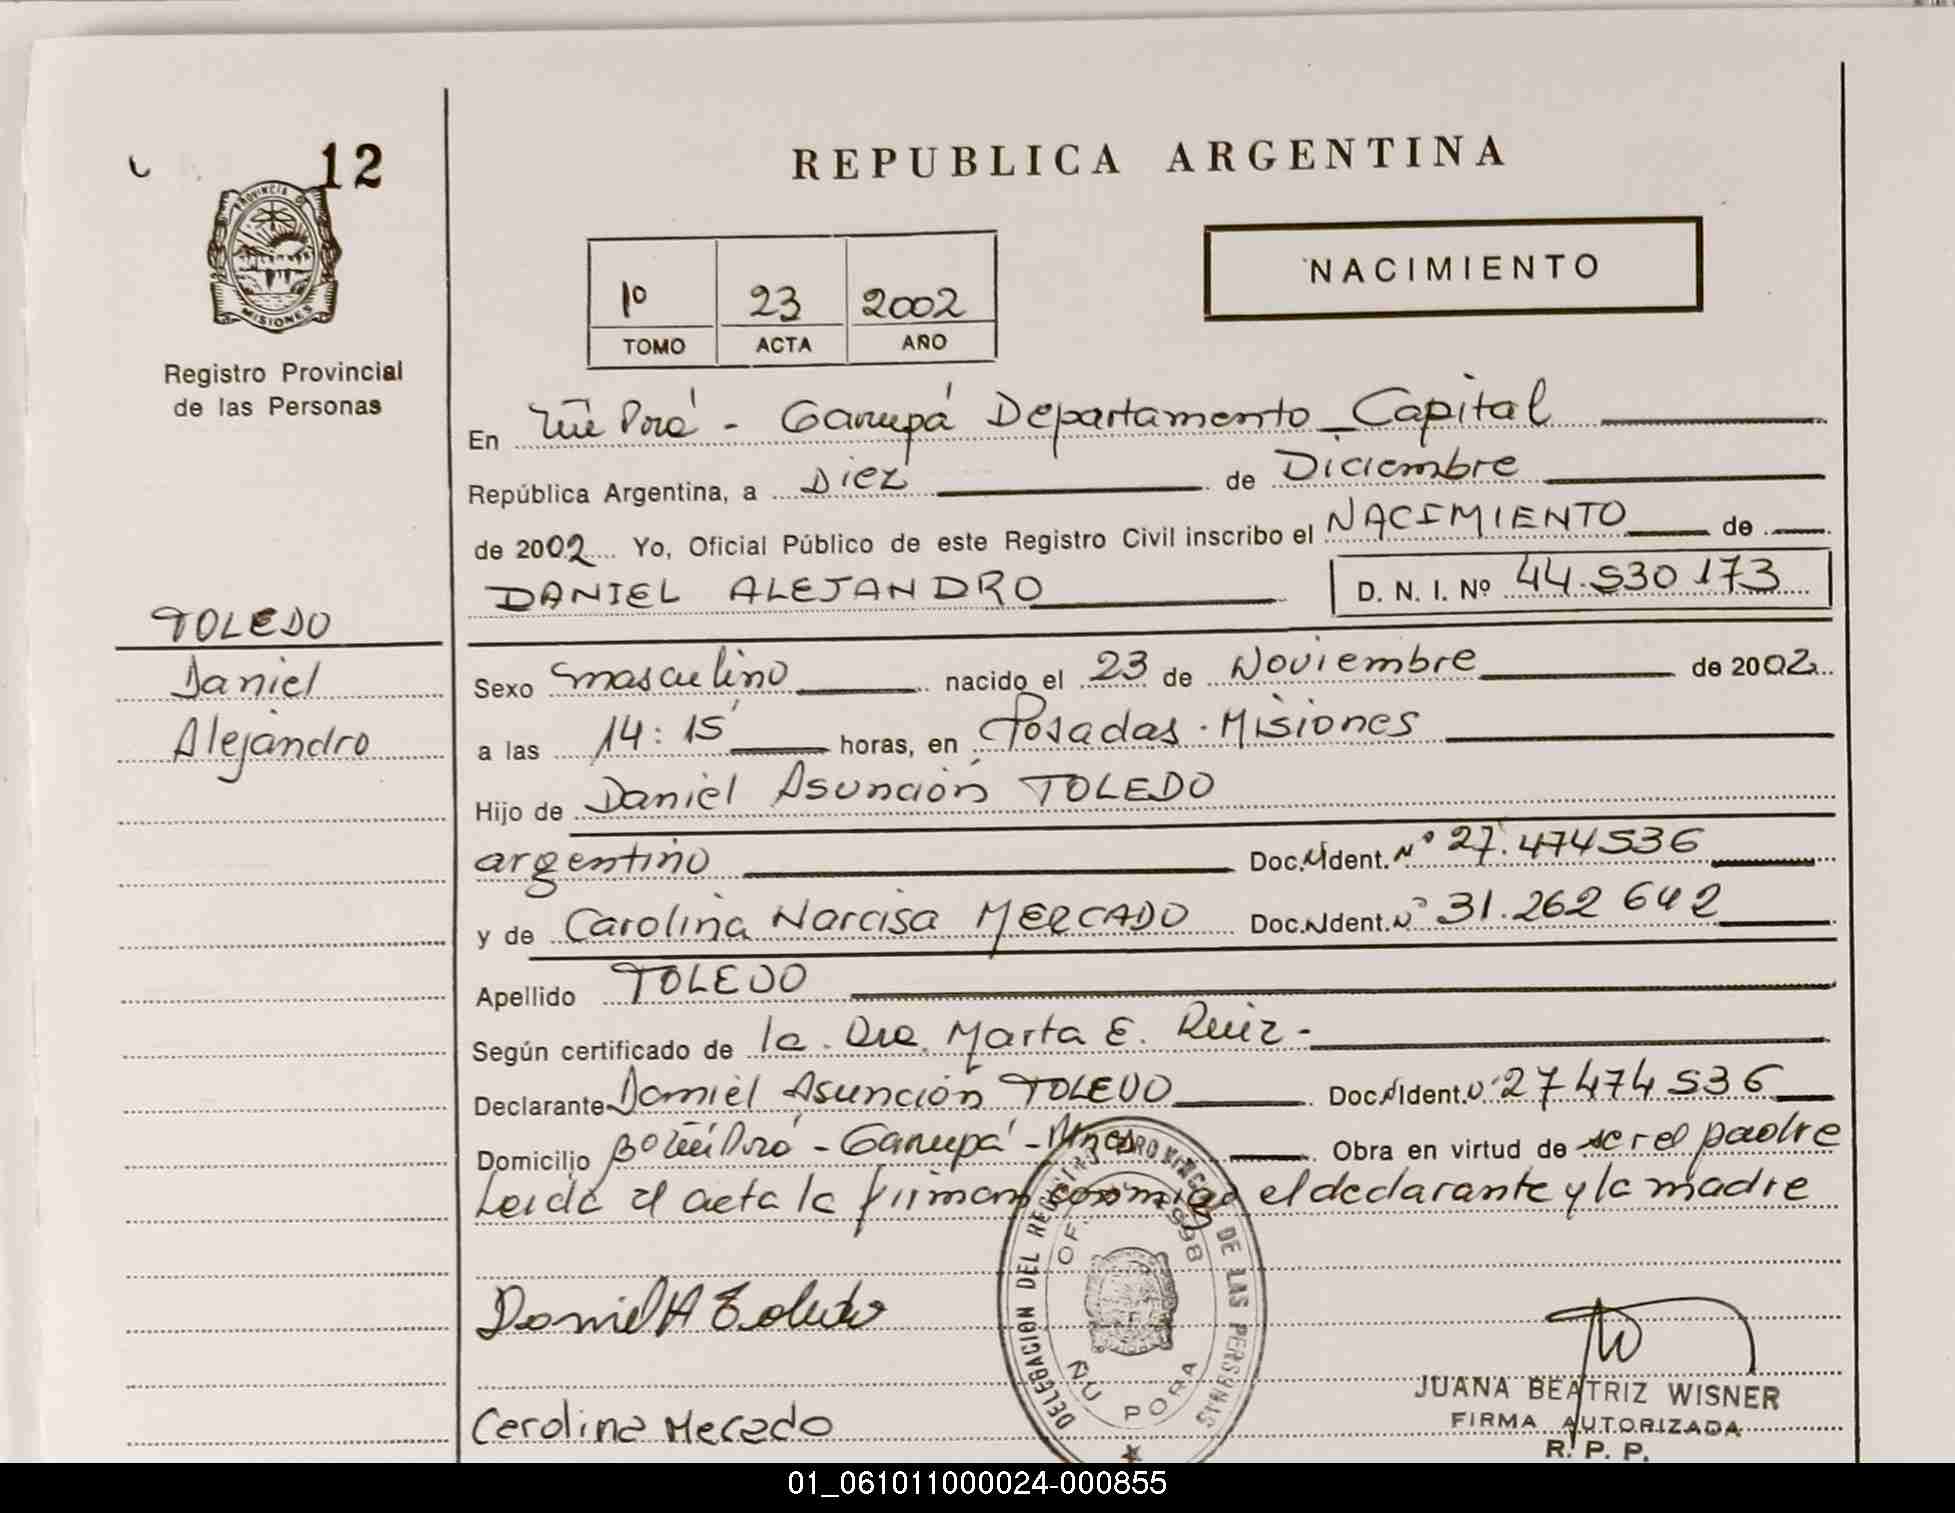 12
PROVINCIA DE
MISIONES
Registro Provincial
de las Personas
REPUBLICA ARGENTINA
1º 23 2002
TOMO ACTA AÑO
NACIMIENTO
En Ñu Porá - Garupá Departamento Capital
República Argentina, a Diez de Diciembre
de 2002 Yo, Oficial Público de este Registro Civil inscribo el NACIMIENTO de
DANIEL ALEJANDRO D. N. I. Nº 44.530.173
TOLEDO
Daniel
Alejandro
Sexo masculino nacido el 23 de Noviembre de 2002
a las 14:15 horas, en Posadas - Misiones
Hijo de Daniel Asunción TOLEDO
argentino Doc. Ident. Nº 27.474536
y de Carolina Narcisa MERCADO Doc. Ident. Nº 31.262 642
Apellido TOLEDO
Según certificado de la Dra. Marta E. Ruiz -
Declarante Daniel Asunción TOLEDO Doc. Ident. Nº 27 474 536
Domicilio Bº Ñu Porá - Garupá - Mnes Obra en virtud de ser el padre
Leida el acta la firman conmigo el declarante y la madre
DELEGACION DEL REGISTRO PROVINCIAL DE LAS PERSONAS
ÑU PORA
Daniel A Toledo
Carolina Mercado
JUANA BEATRIZ WISNER
FIRMA AUTORIZADA
R. P. P.
01_061011000024-000855